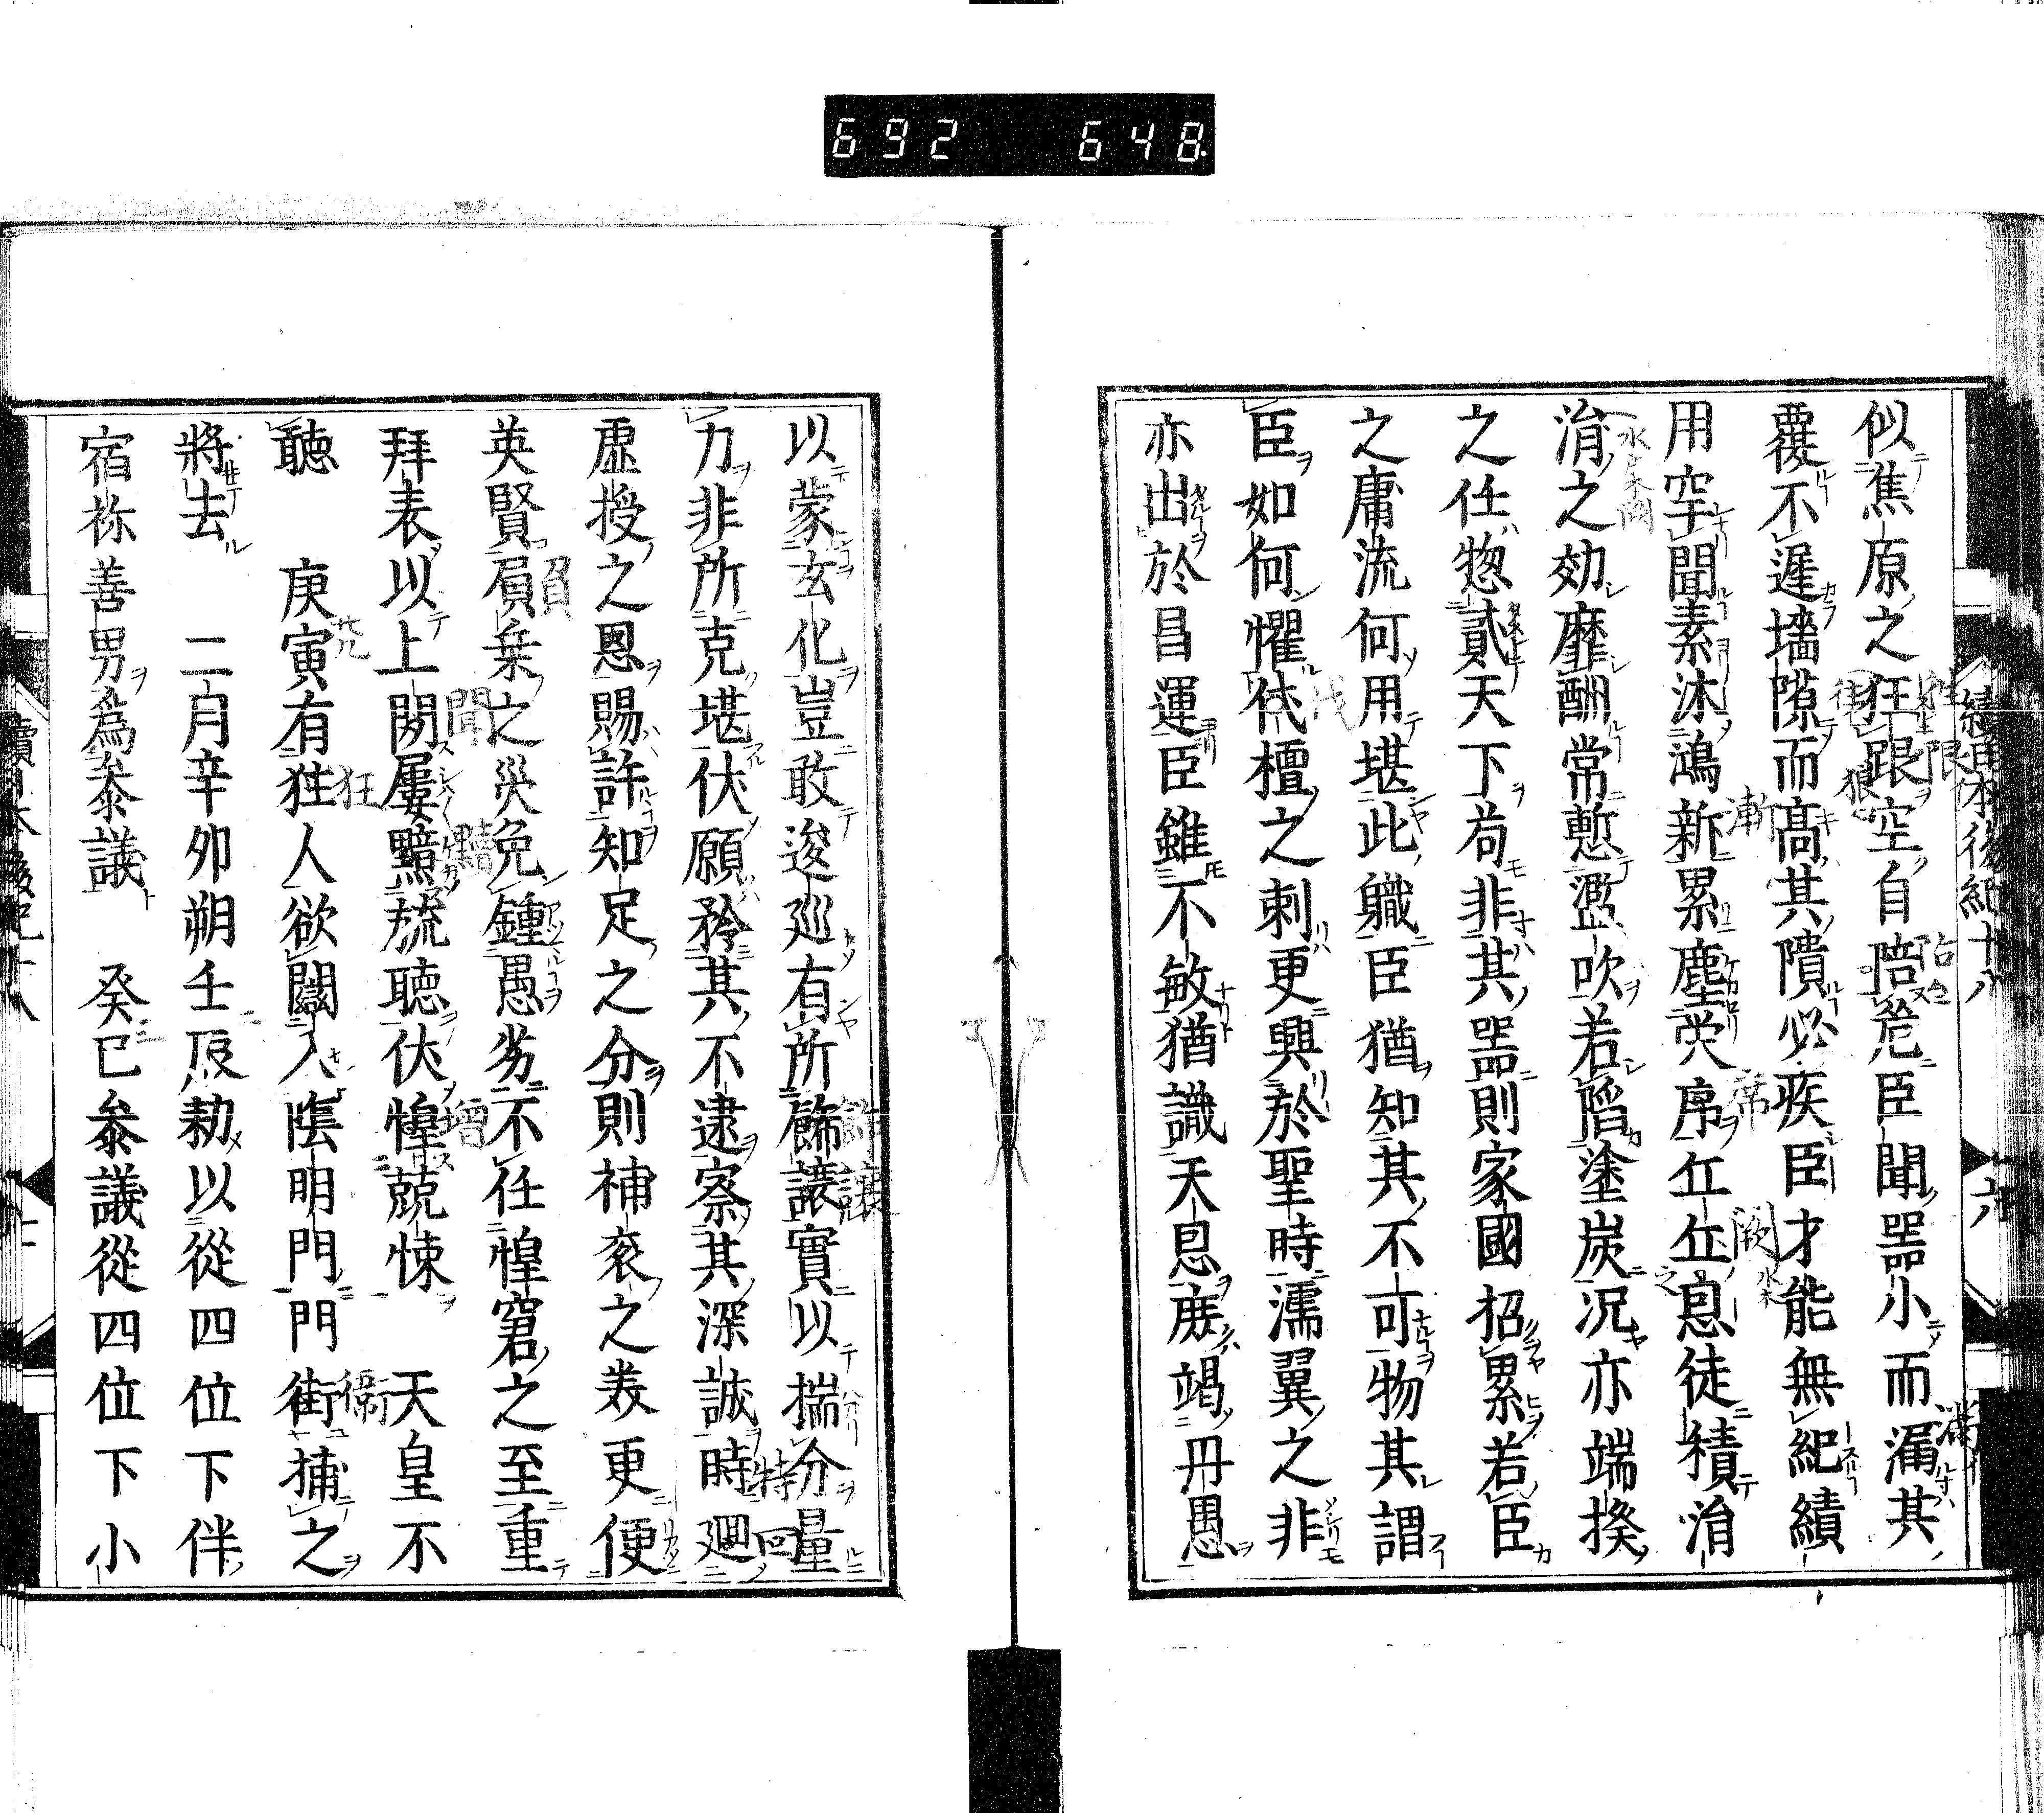 692 648
似焦原之狂跟空自陪危臣聞器小而漏其
覆不遅墻隙而高其隤必疾臣才能無紀績
用罕聞素沐鴻新累塵熒序仕仕息徒積涓
涓之効靡酬常慙濫吹若陷塗炭况亦端揆
之任惣貳天下苟非其器則家國招累若臣
之庸流何用堪此職臣猶知其不可物其謂
臣如何懼伐檀之刺更興於聖時濡翼之非
亦出於昌運臣雖不敏猶識天恩庶竭丹愚
續日本後紀十八
六
以蒙玄化豈敢逡巡有所餝讓實以揣分量
力非所克堪伏願矜其不逮察其深誠時廻
虚授之恩賜許知足之分則補衮之美更便
英賢屓乗之災免鍾愚劣不任惶窘之至重
拜表以上聞屢黷旒聴伏惶兢悚 天皇不
聴 庚寅有狌人欲闌入陰明門門街捕之
將去 二月辛卯朔壬辰勅以從四位下伴
宿祢善男為参議 癸巳参議從四位下小